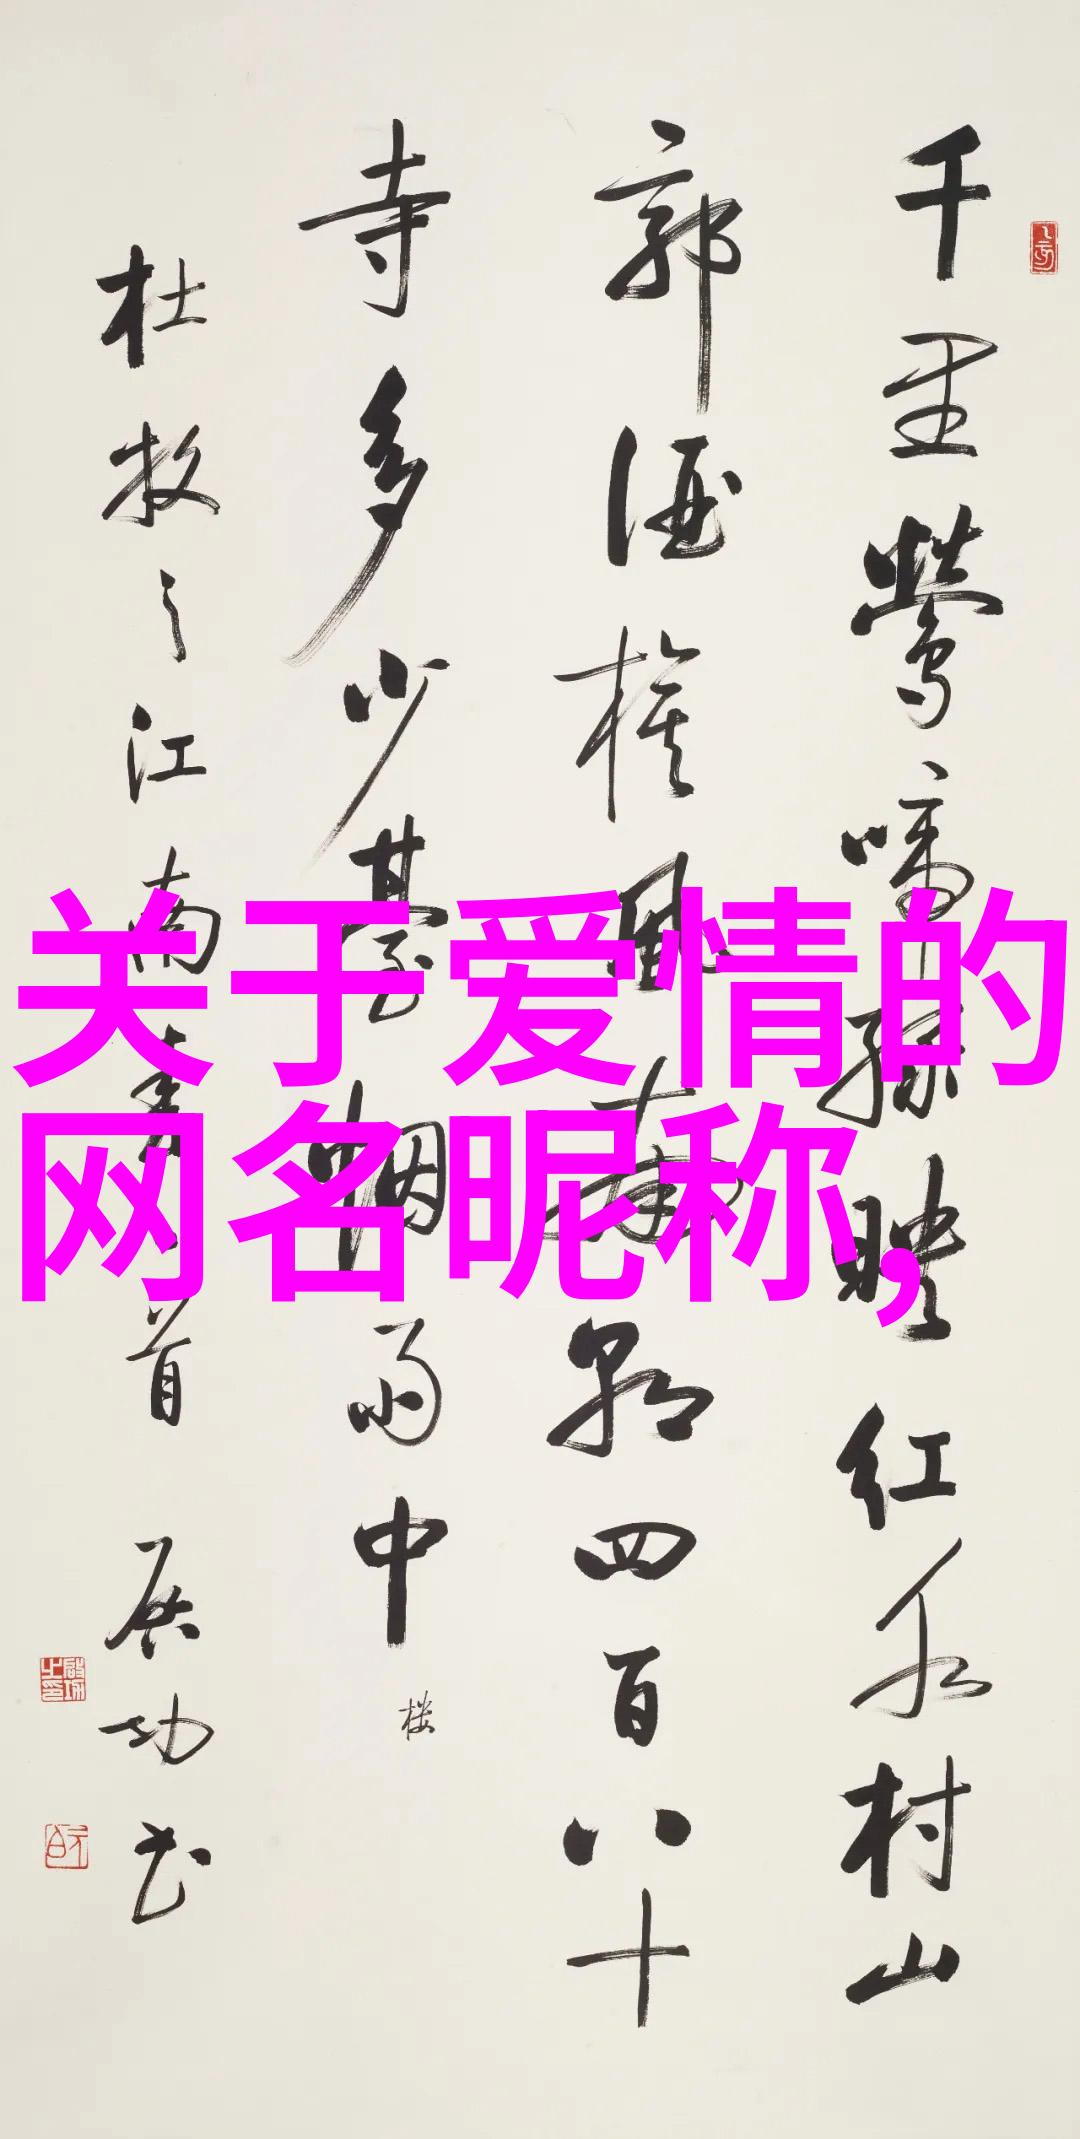 千里莺啼绿映红水村山
郭酒旗风南朝四百八十
寺多少臺烟雨中
楼
杜牧之江南春首 启功书
关于爱情的
网名昵称,